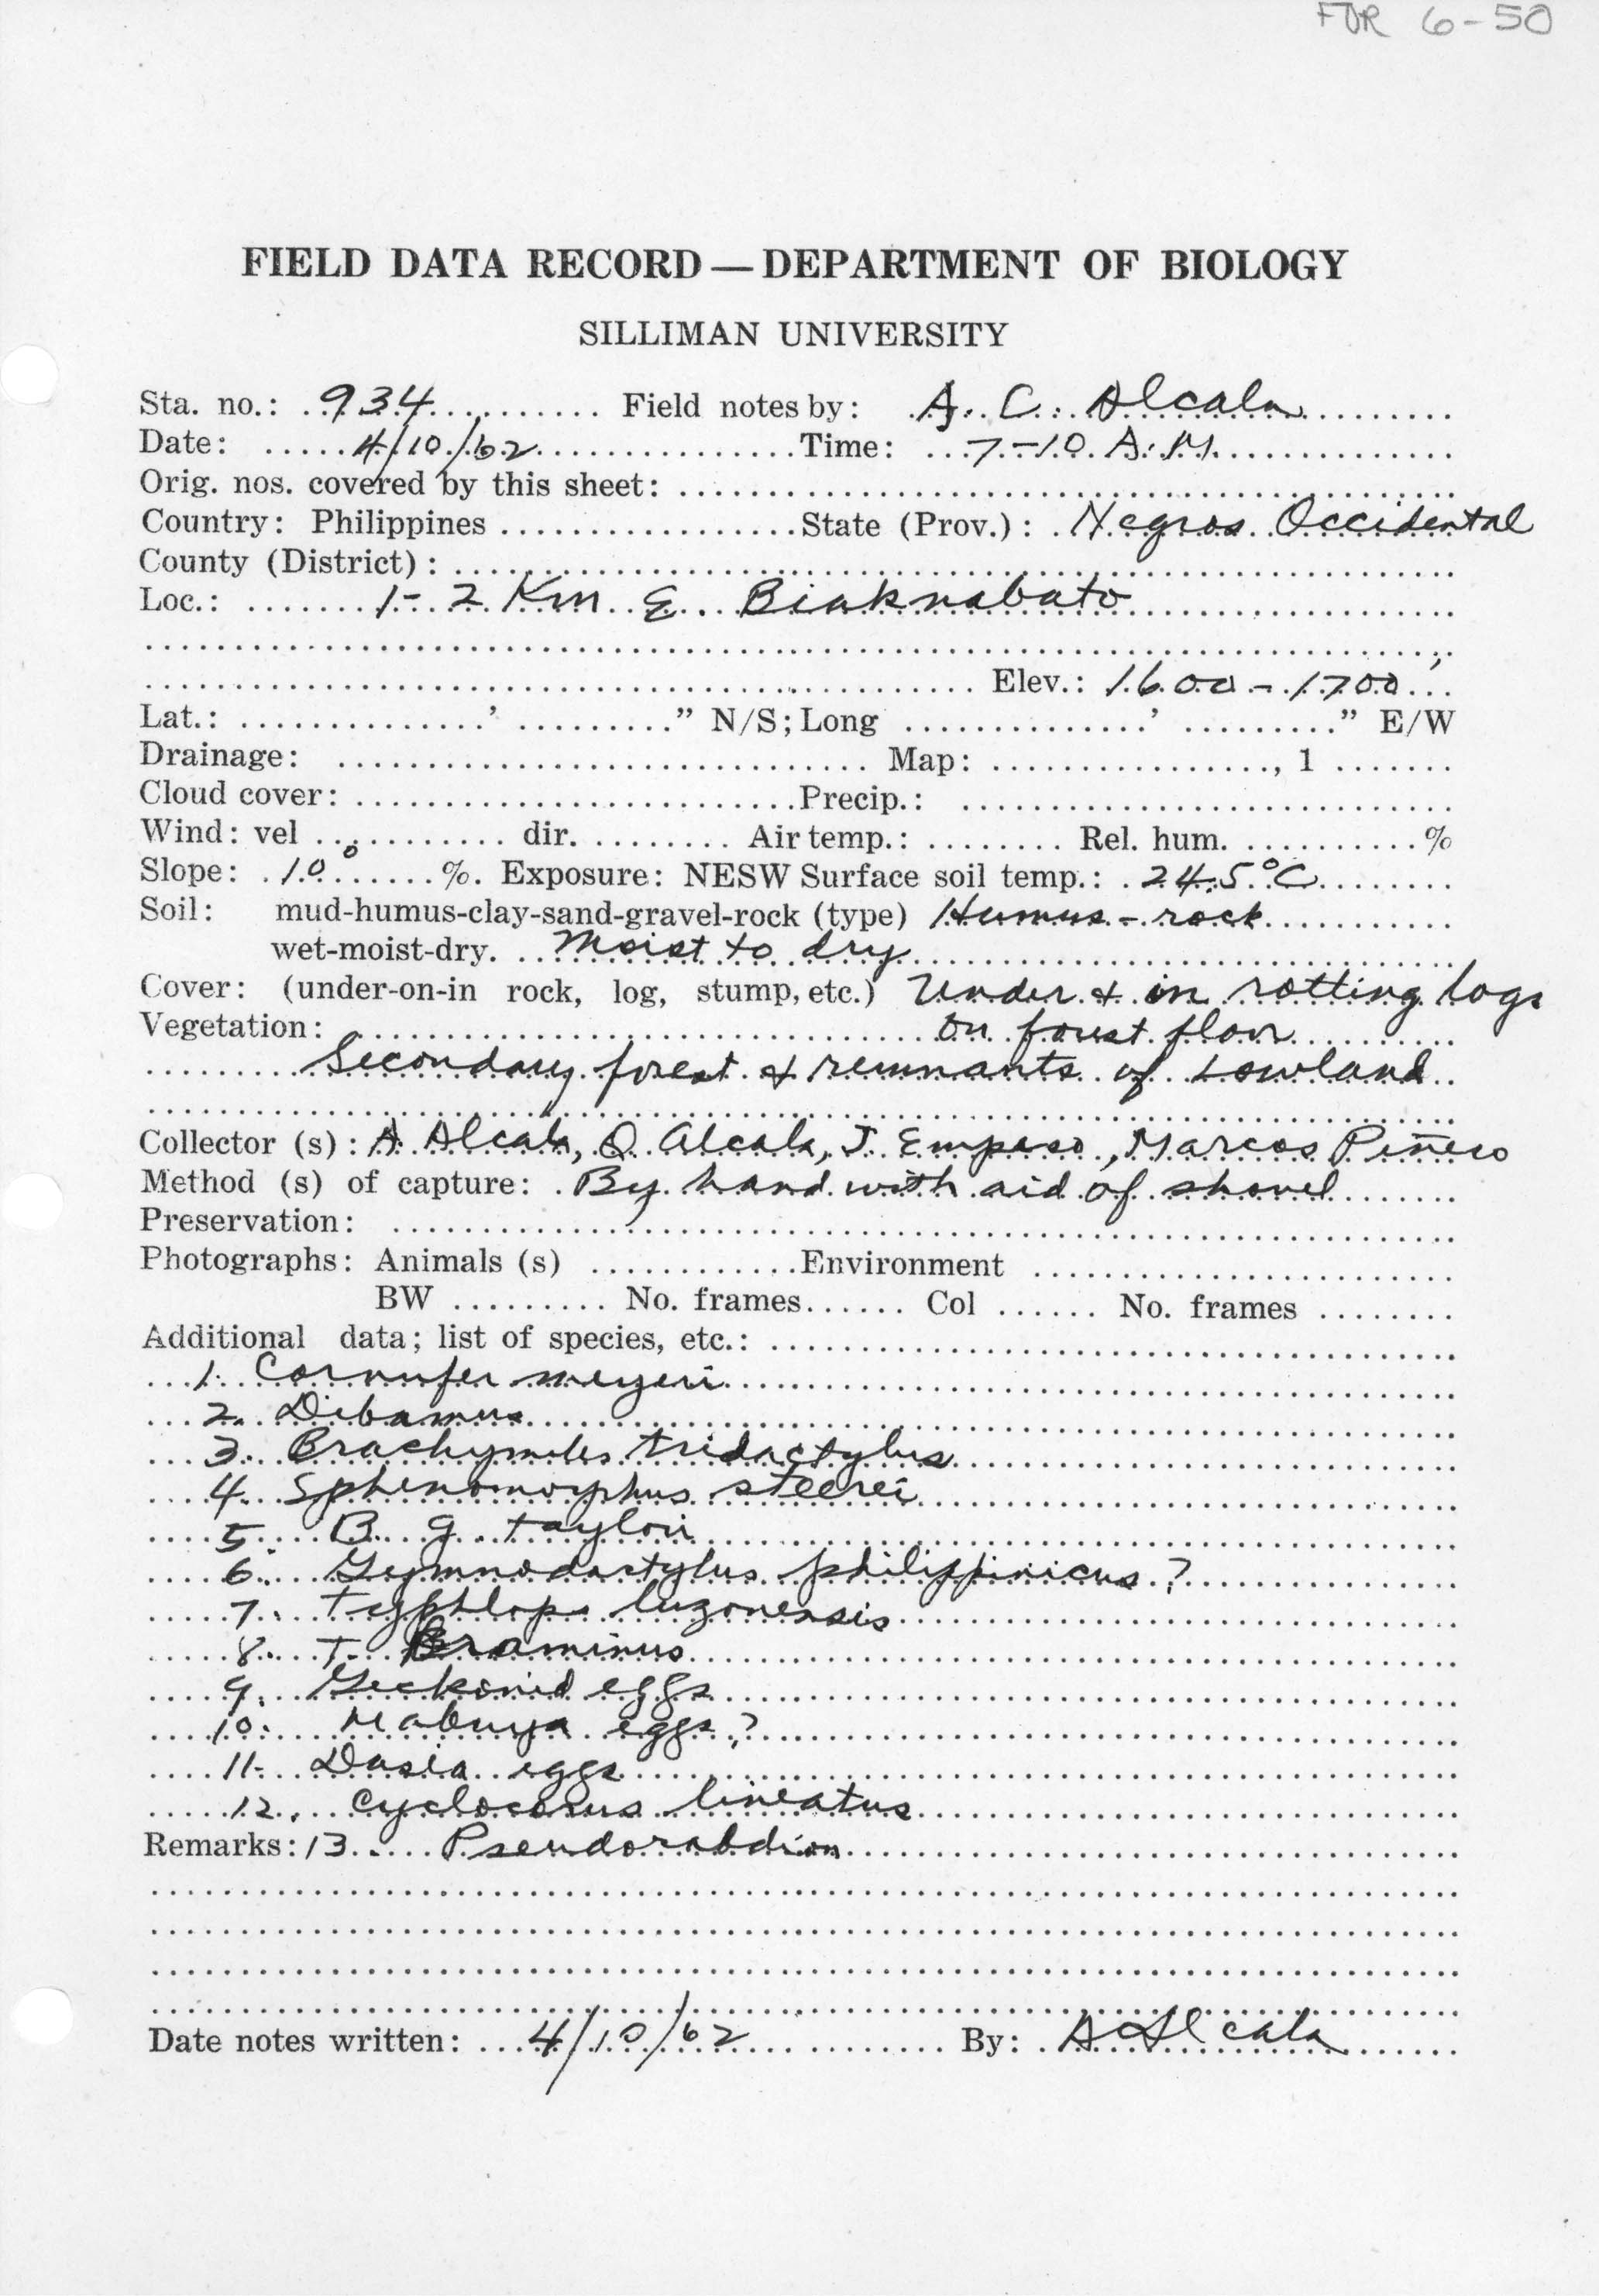 FDR 6-50
FIELD DATA RECORD — DEPARTMENT OF BIOLOGY
SILLIMAN UNIVERSITY
Sta. no.: 934 Field notes by: A. C. Alcala
Date: 4/10/62 Time: 7-10 A.M.
Orig. nos. covered by this sheet:
Country: Philippines State (Prov.): Negros Occidental
County (District):
Loc.: 1-2 Km E. Biaknabato
Elev.: 1600-1700'
Lat.: ' " N/S; Long ' " E/W
Drainage: Map: , 1
Cloud cover: Precip.:
Wind: vel dir. Air temp.: Rel. hum. %
Slope: 10° %. Exposure: NESW Surface soil temp.: 24.5°C
Soil: mud-humus-clay-sand-gravel-rock (type) Humus-rock
wet-moist-dry. Moist to dry
Cover: (under-on-in rock, log, stump, etc.) Under & in rotting logs
Vegetation: on forest floor
Secondary forest & remnants of Lowland
Collector (s): A. Alcala, Q. Alcala, J. Empeso, Marcos Piñero
Method (s) of capture: By hand with aid of shovel
Preservation:
Photographs: Animals (s) Environment
BW No. frames Col No. frames
Additional data; list of species, etc.:
1. Cornufer meyeri
2. Dibamus
3. Brachymeles tridactylus
4. Sphenomorphus steerei
5. B. g. taylori
6. Gymnodactylus philippinicus?
7. Typhlops luzonensis
8. T. Braminus
9. Geckonid eggs
10. Mabuya eggs?
11. Dasia eggs
12. Cyclocorus lineatus
Remarks: 13. Pseudorabdion
Date notes written: 4/10/62 By: A Alcala